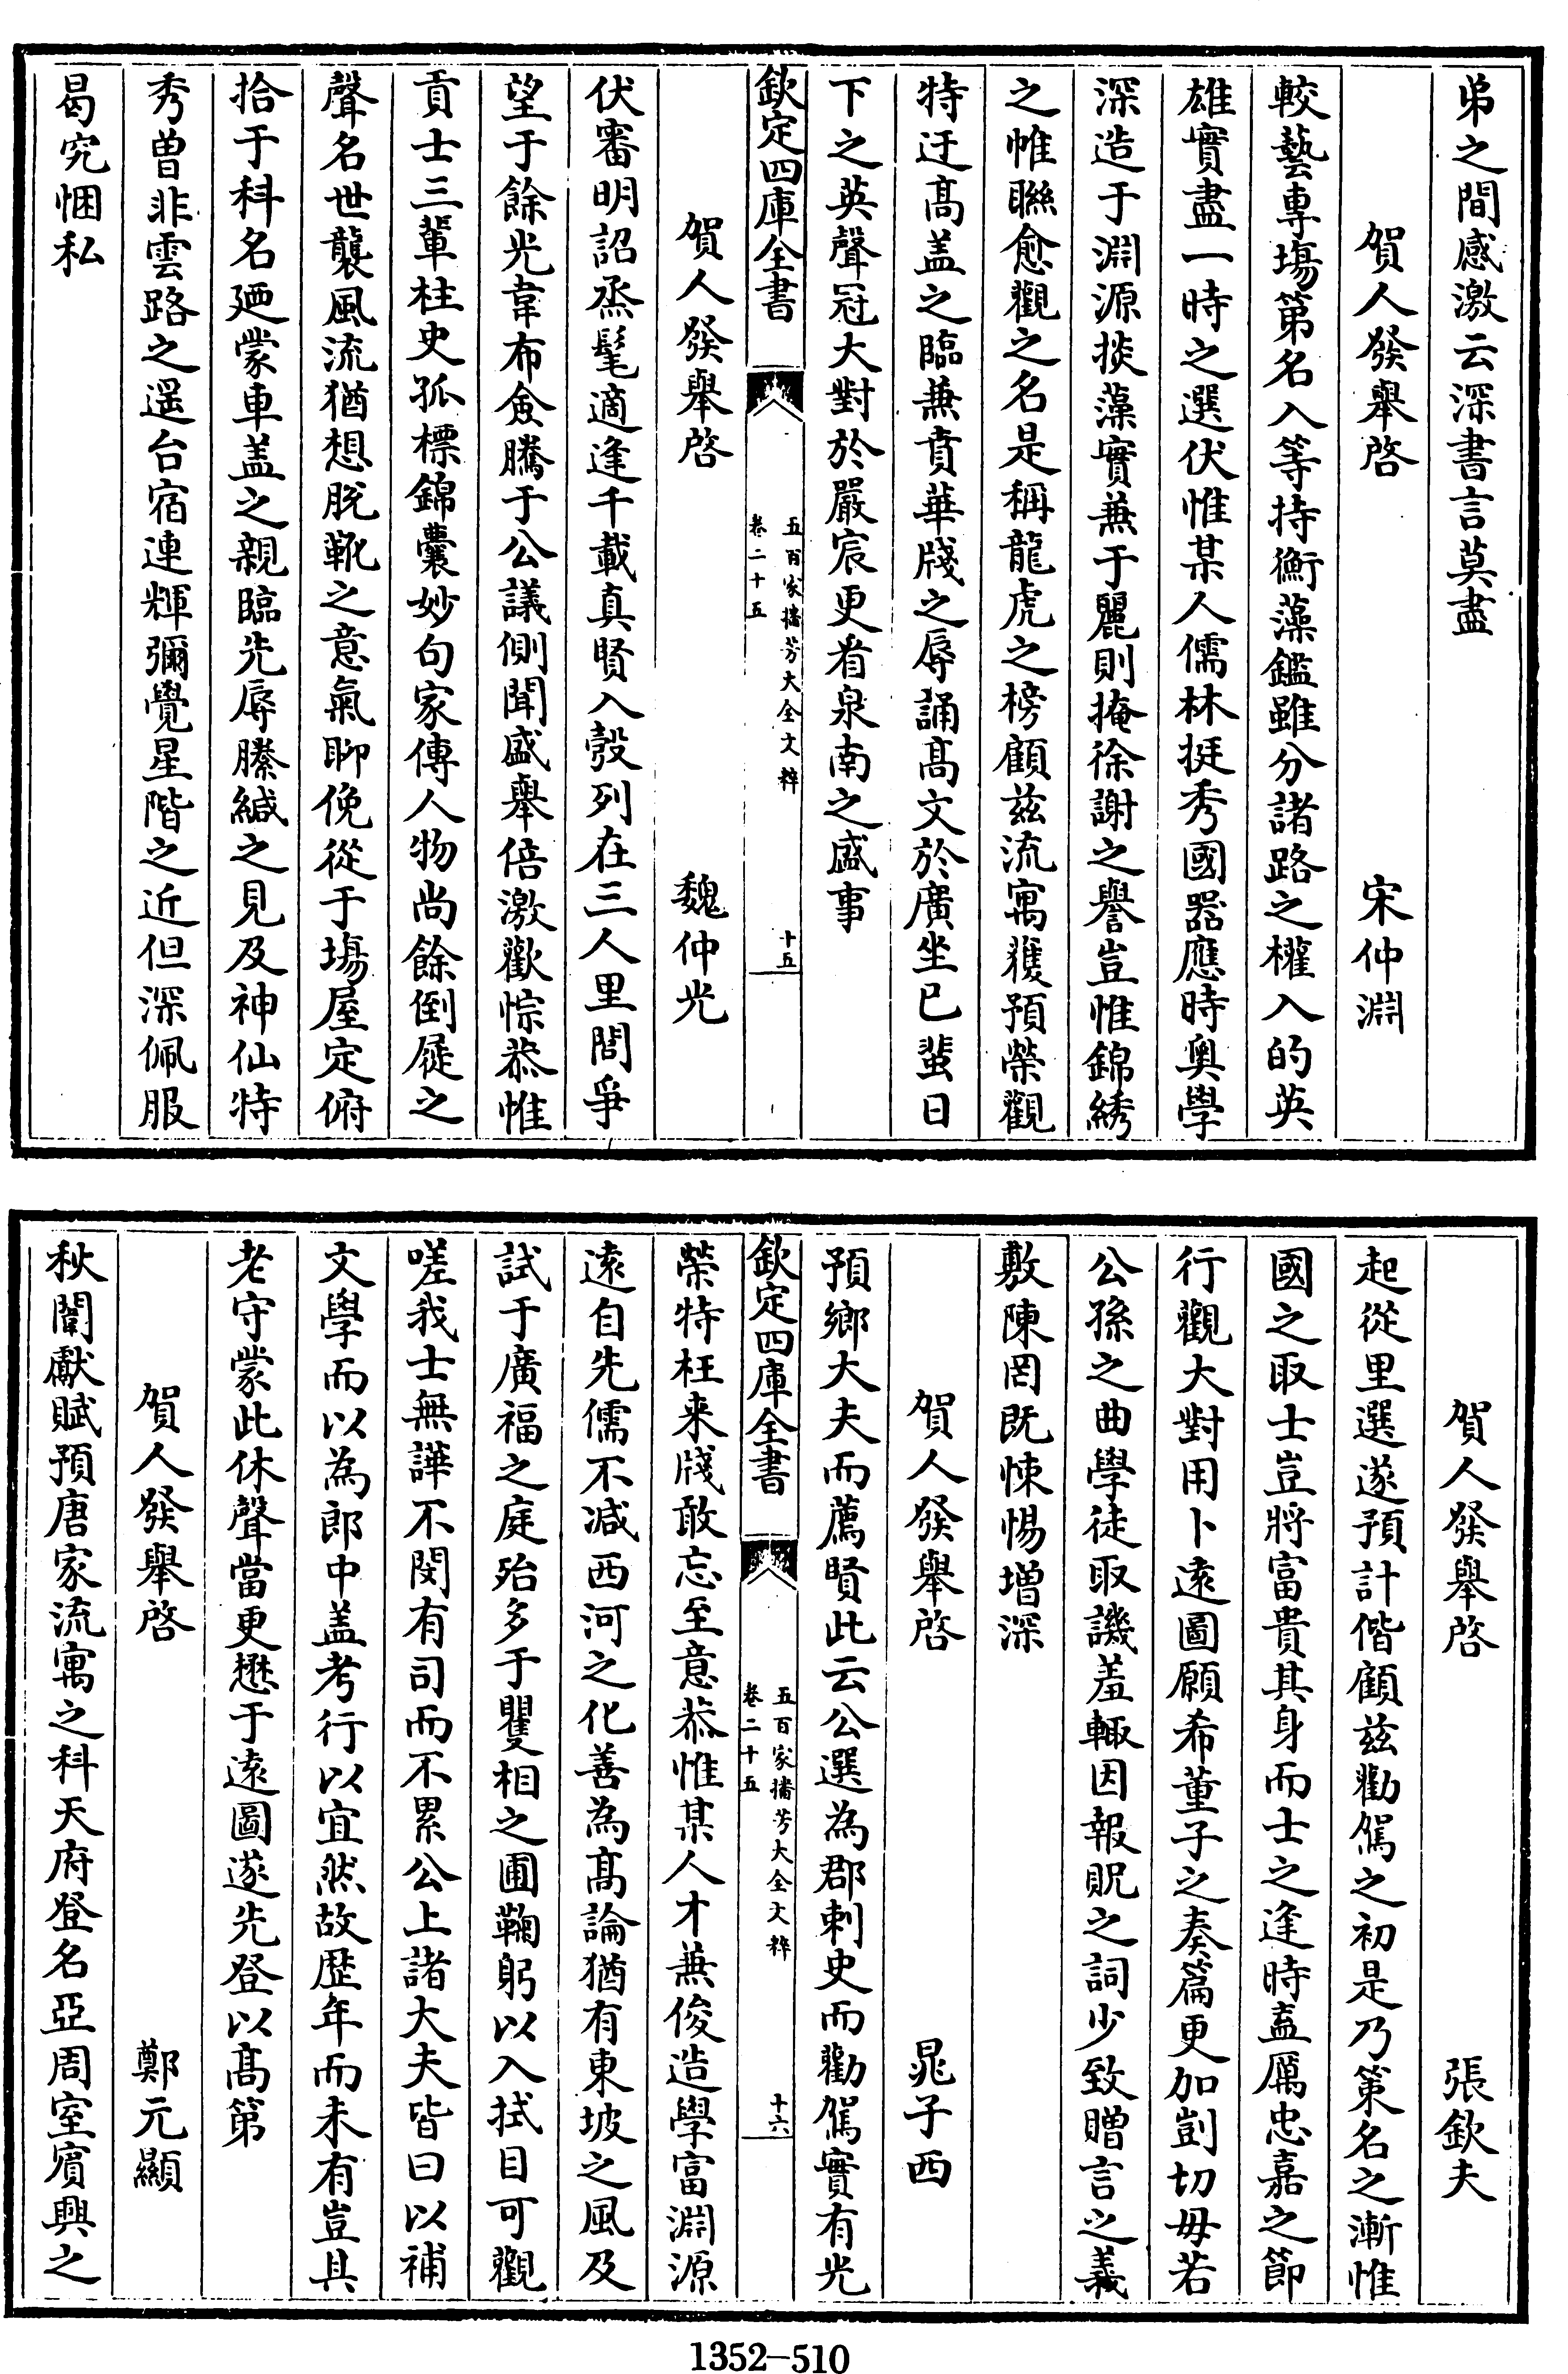 弟之間感激云深書言莫盡
賀人發舉啓　宋仲淵
較藝專場第名入等持衡藻鑑雖分諸路之權入的英
雄實盡一時之選伏惟某人儒林挺秀國器應時奥學
深造于淵源掞藻實兼于麗則掩徐謝之譽豈惟錦綉
之帷聯愈觀之名是稱龍虎之榜顧兹流寓獲預榮觀
特迂髙盖之臨兼賁華牋之辱誦髙文於廣坐已蜚日
下之英聲冠大對於嚴宸更看泉南之盛事
欽定四庫全書　五百家播芳大全文粹　卷二十五　十五
賀人發舉啓　魏仲光
伏審明詔烝髦適逢千載真賢入彀列在三人里閭爭
望于餘光韋布僉騰于公議側聞盛舉倍激歡悰恭惟
貢士三輩柱史孤標錦囊妙句家傳人物尚餘倒屣之
聲名世襲風流猶想脱靴之意氣聊俛從于場屋定俯
拾于科名廼蒙車盖之親臨先辱縢緘之見及神仙特
秀曽非雲路之遥台宿連輝彌覺星階之近但深佩服
曷究悃私
賀人發舉啓　張欽夫
起從里選遂預計偕顧兹勸駕之初是乃策名之漸惟
國之取士豈將富貴其身而士之逢時盍厲忠嘉之節
行觀大對用卜遠圖願希董子之奏篇更加剴切毋若
公孫之曲學徒取譏羞輒因報貺之詞少致贈言之義
敷陳罔既悚惕增深
賀人發舉啓　晁子西
預鄉大夫而薦賢此云公選為郡刺史而勸駕實有光
欽定四庫全書　五百家播芳大全文粹　卷二十五　十六
榮特枉來牋敢忘至意恭惟某人才兼俊造學富淵源
遠自先儒不减西河之化善為髙論猶有東坡之風及
試于廣福之庭殆多于矍相之圃鞠躬以入拭目可觀
嗟我士無譁不閔有司而不累公上諸大夫皆曰以補
文學而以為郎中盖考行以宜然故歴年而未有豈具
老守蒙此休聲當更懋于遠圖遂先登以髙第
賀人發舉啓　鄭元顯
秋闈獻賦預唐家流寓之科天府登名亞周室賓興之
1352-510